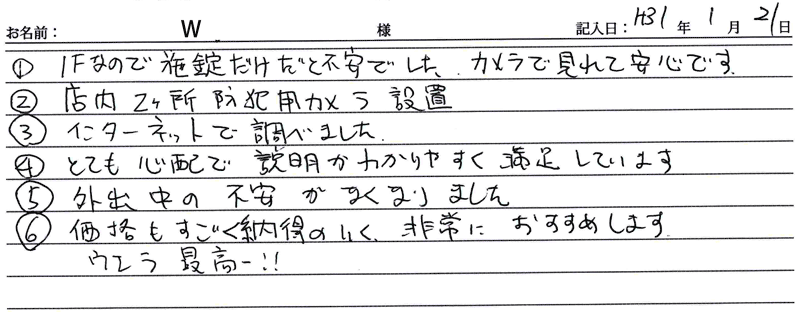 お名前： W 様 記入日：H31年1月21日
① 1Fなので施錠だけだと不安でした。カメラで見れて安心です。
② 店内 2ヶ所 防犯用カメラ 設置
③ インターネットで調べました。
④ とても心配で 説明がわかりやすく 満足しています
⑤ 外出中の 不安が なくなりました
⑥ 価格もすごく納得のいく、非常に おすすめします。
ウエラ 最高ー!!